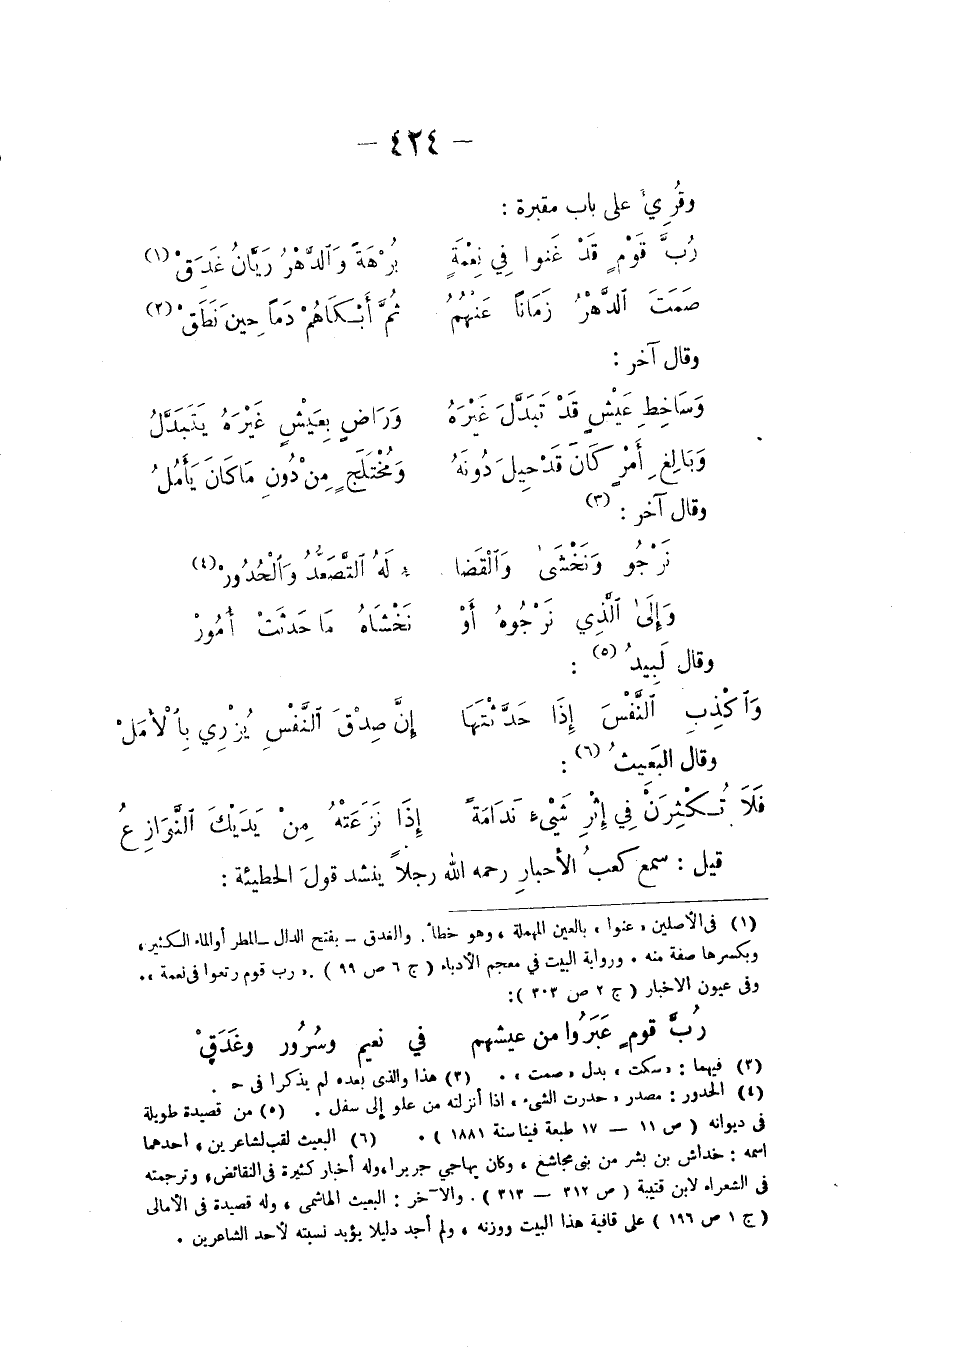 — ٤٢٤ —
وقُرِئَ على باب مقبرة :
رُبَّ قَوْمٍ قَدْ غَنوا فِي نِعْمَةٍ بُرْهَةً وَٱلدَّهْرُ رَيَّانُ غَدِقْ (١)
صَمَتَ ٱلدَّهْرُ زَمَانًا عَنْهُمُ ثُمَّ أَبْكَاهُمْ دَمًا حِينَ نَطَقْ (٢)
وقال آخر :
وَسَاخِطِ عَيْشٍ قَدْ تَبَدَّلَ غَيْرَهُ وَرَاضٍ بِعَيْشٍ غَيْرَهُ يَتَبَدَّلُ
وَبَالِغِ أَمْرٍ كَانَ قَدْ حِيلَ دُونَهُ وَمُخْتَلَجٍ مِنْ دُونِ مَا كَانَ يَأْمُلُ
وقال آخر : (٣)
نَرْجُو وَنَخْشَىٰ وَٱلْقَضَا ءِ لَهُ ٱلتَّصَعُّدُ وَٱلْحُدُورْ (٤)
وَإِلَىٰ ٱلَّذِي نَرْجُوهُ أَوْ نَخْشَاهُ مَا حَدثَتْ أُمُورْ
وقال لَبِيدُ (٥) :
وَٱكْذِبِ ٱلنَّفْسَ إِذَا حَدَّثْتَهَا إِنَّ صِدْقَ ٱلنَّفْسِ يُزْرِي بِٱلْأَمَلْ
وقال البَعيثُ (٦) :
فَلَا تُكْثِرَنْ فِي إِثْرِ شَيْءٍ نَدَامَةً إِذَا نَزَعَتْهُ مِنْ يَدَيْكَ ٱلنَّوَازِعُ
قيل : سمع كعبُ الأحبارِ رحمه الله رجلاً ينشد قولَ الحطيئة :
(١) فى الأصلين « عنوا » بالعين المهملة ، وهو خطأ . والغدق — بفتح الدال — المطر أو الماء الكثير ،
وبكسرها صفة منه . ورواية البيت في معجم الأدباء ( ج ٦ ص ٩٩ ) . « رب قوم رتعوا فى نعمة » .
وفى عيون الاخبار ( ج ٢ ص ٣٠٣ ) :
رُبَّ قومٍ عَبَرُوا من عيشهم في نعيم وسُرُور وغَدَقْ
(٢) فيهما : « سكت » بدل « صمت » . (٣) هذا والذى بعده لم يذكرا فى ح .
(٤) الحدور : مصدر « حدرت الشىء » اذا أنزلته من علو إلى سفل . (٥) من قصيدة طويلة
فى ديوانه ( ص ١١ — ١٧ طبعة فينا سنة ١٨٨١ ) . (٦) البعيث لقب لشاعرين ، أحدهما
اسمه : خداش بن بشر من بنى مجاشع ، وكان يهاجي جريرا ، وله أخبار كثيرة فى النقائض ، وترجمته
فى الشعراء لابن قتيبة ( ص ٣١٢ — ٣١٣ ) . والآخر : البعيث الهاشمى ، وله قصيدة فى الأمالى
( ج ١ ص ١٩٦ ) على قافية هذا البيت ووزنه ، ولم أجد دليلا يؤيد نسبته لأحد الشاعرين .